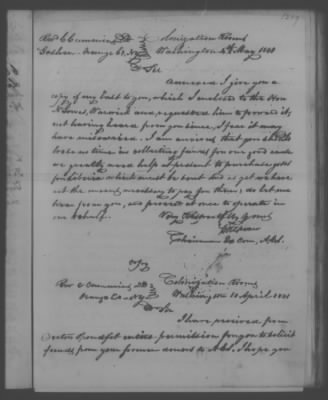 Rev C Cummins DD
Goshen Orange Co. NY
Colonization Rooms
Washington 4th May 1841
Dr Sir
Annexed I give you a
copy of my last to you, which I enclosed to the Hon
Jones, Warwick and requested him to forward it,
not having heard from you since, I fear it may
have miscarried. I am anxious that you should
lose no time in collecting funds for our good cause
we greatly need help at present to purchase goods
which must be sent has as yet we have
not the means necessary to pay for them; do let me
hear from you, and proceed at once to operate in
our behalf.
Very Respectfully Yours
Chairman Ex Com, A.C.S.
Copy
Rev C Cummins DD
Orange Co. NY
Colonization Rooms
Washington 10 April 1841
Dr Sir
I have received from
permission for you to solicit
funds from your former donors to A.C.S. I hope you